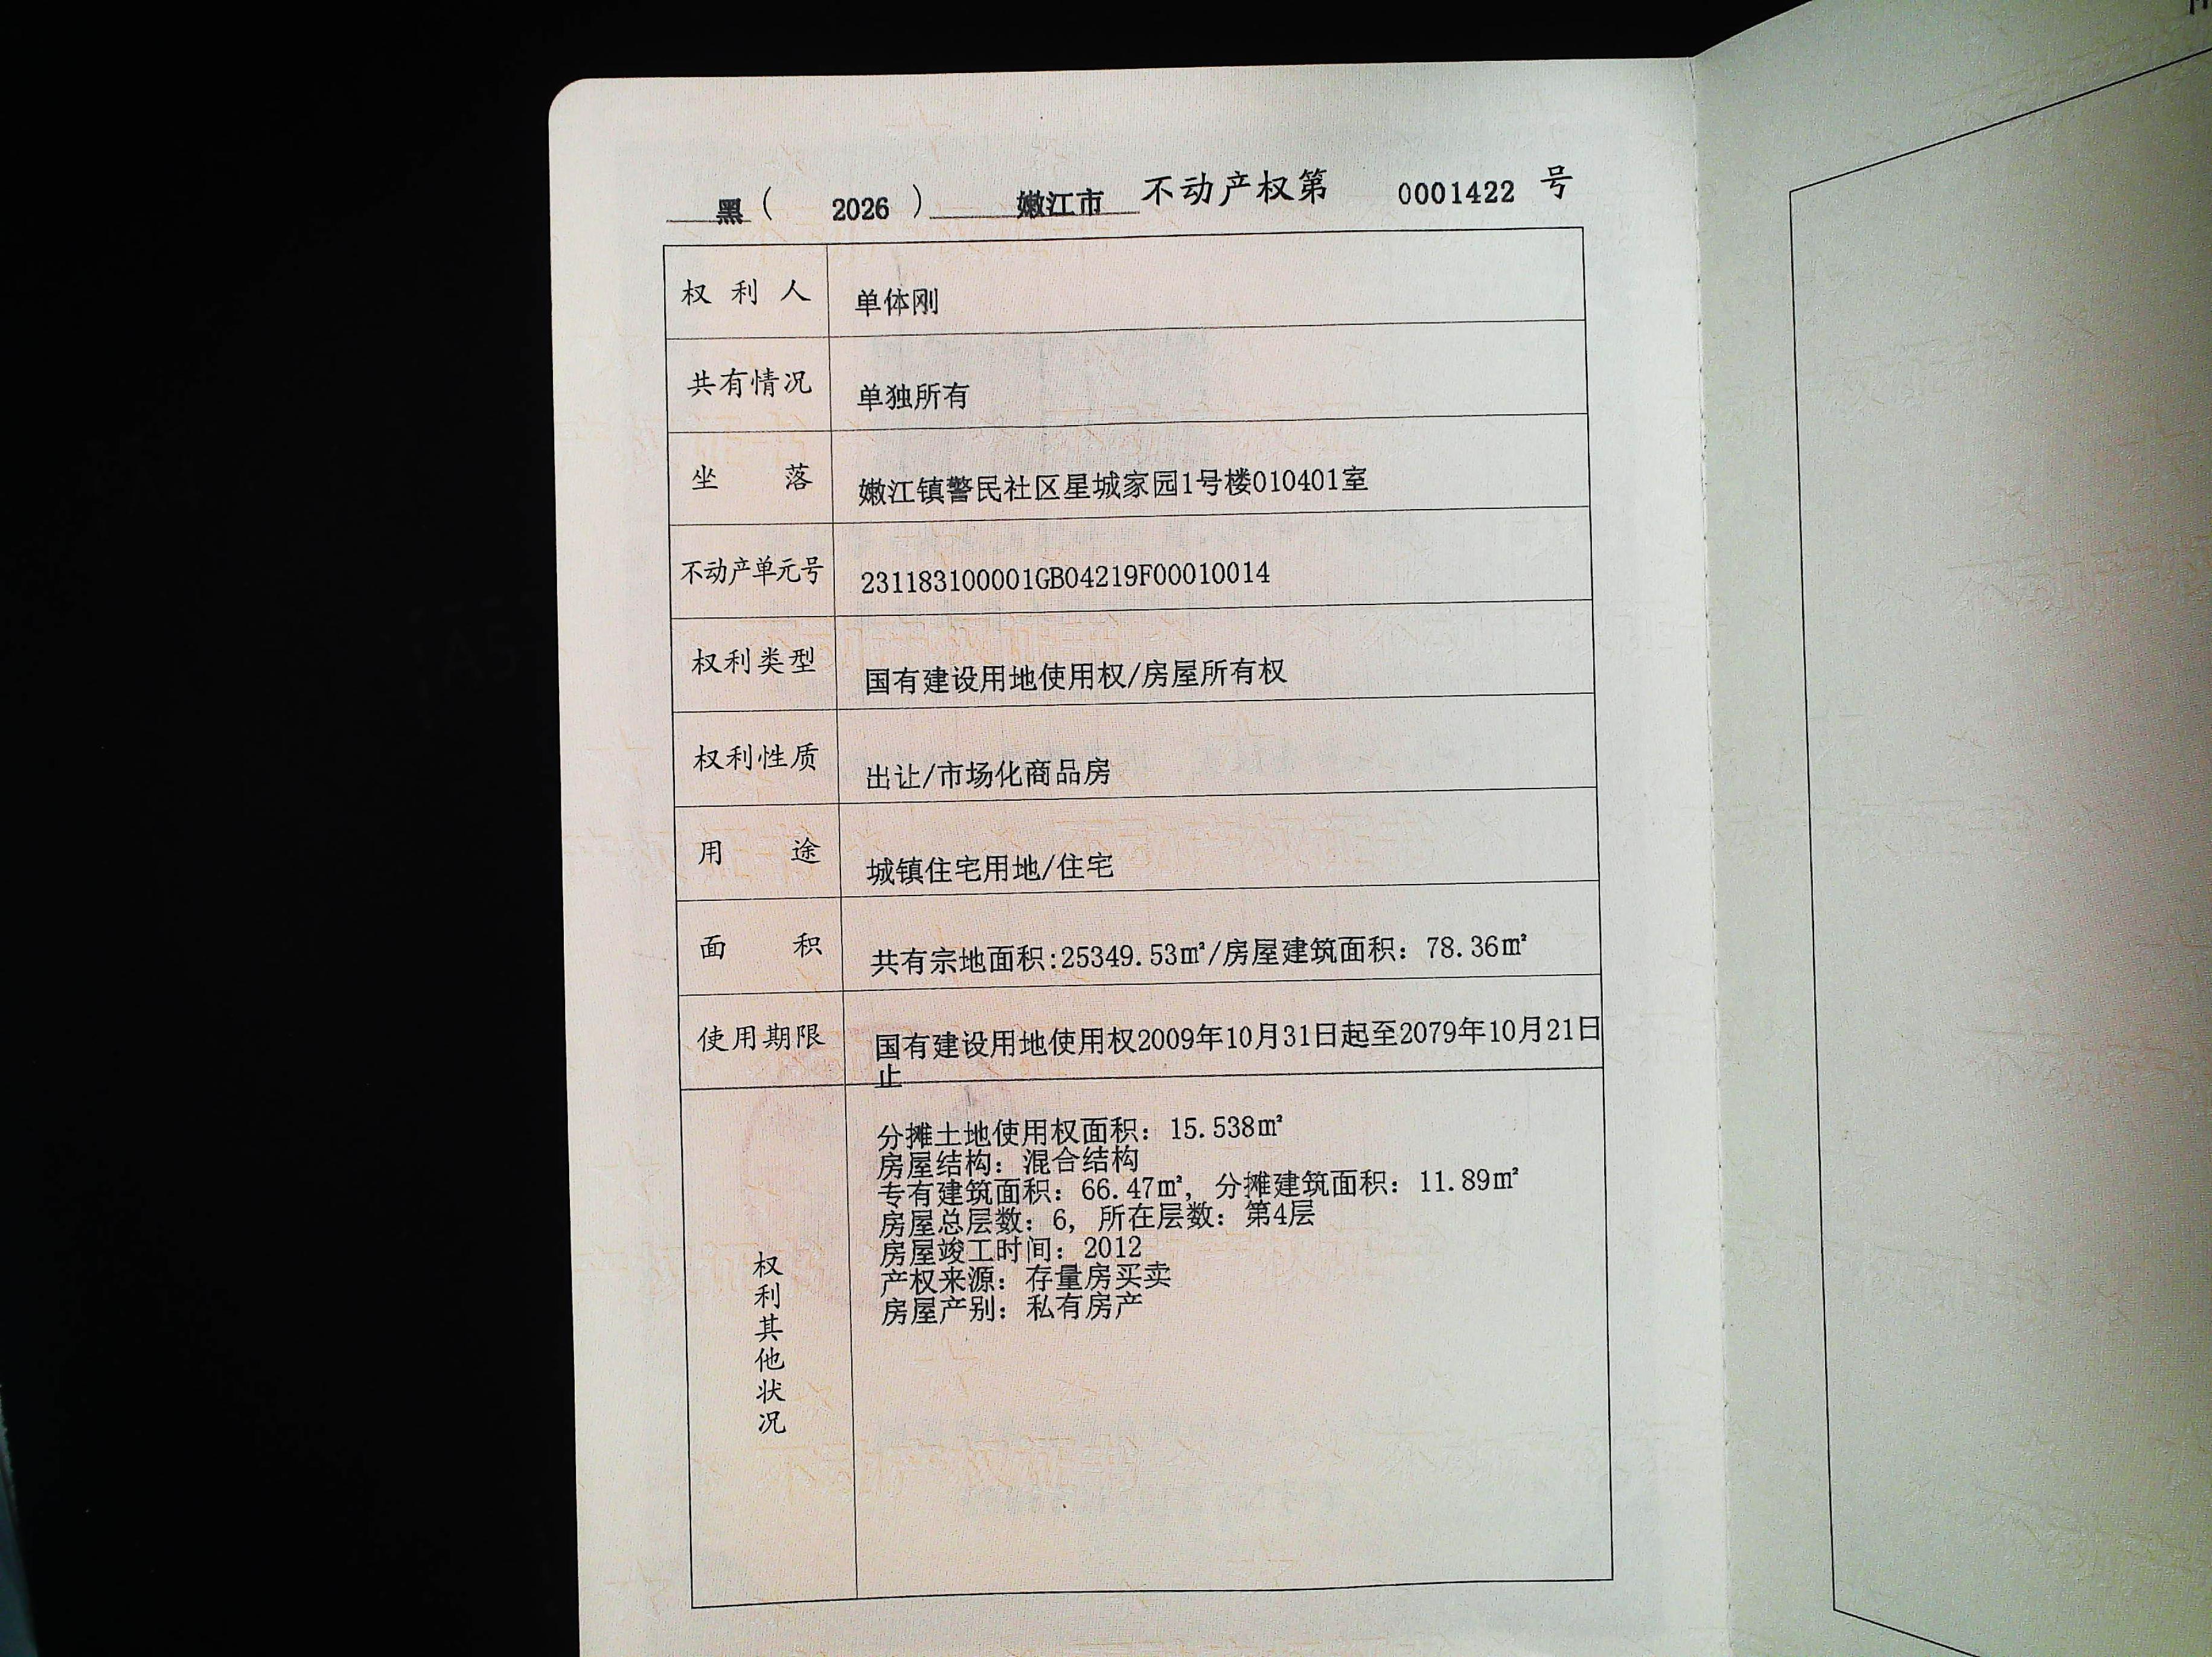 黑（ 2026 ） 嫩江市 不动产权第 0001422 号
权利人 单体刚
共有情况 单独所有
坐落 嫩江镇警民社区星城家园1号楼010401室
不动产单元号 231183100001GB04219F00010014
权利类型 国有建设用地使用权/房屋所有权
权利性质 出让/市场化商品房
用途 城镇住宅用地/住宅
面积 共有宗地面积:25349.53㎡/房屋建筑面积：78.36㎡
使用期限 国有建设用地使用权2009年10月31日起至2079年10月21日
止
权利其他状况
分摊土地使用权面积：15.538㎡
房屋结构：混合结构
专有建筑面积：66.47㎡，分摊建筑面积：11.89㎡
房屋总层数：6，所在层数：第4层
房屋竣工时间：2012
产权来源：存量房买卖
房屋产别：私有房产